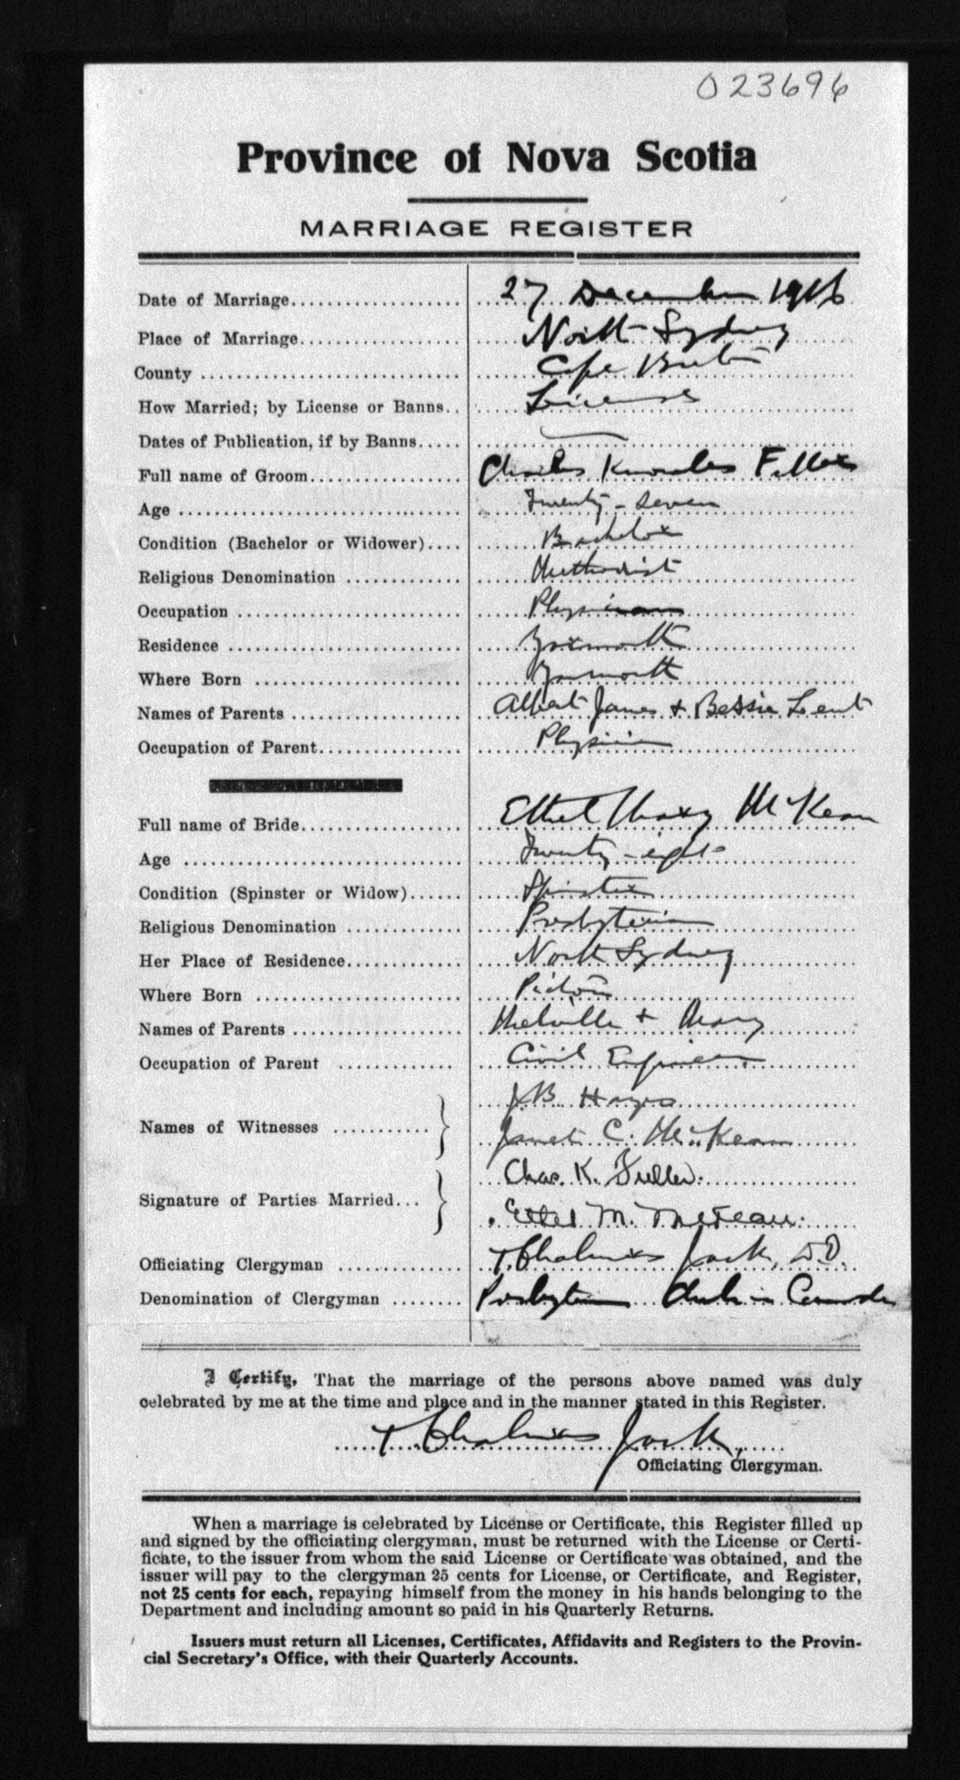 023696
Province of Nova Scotia
MARRIAGE REGISTER
Date of Marriage 27 December 1916
Place of Marriage North Sydney
County Cape Breton
How Married; by License or Banns License
Dates of Publication, if by Banns
Full name of Groom Charles Knowles Fuller
Age Twenty-seven
Condition (Bachelor or Widower) Bachelor
Religious Denomination Methodist
Occupation Physician
Residence Yarmouth
Where Born Yarmouth
Names of Parents Albert James + Bessie Lent
Occupation of Parent Physician
Full name of Bride Ethel Mary McKean
Age Twenty-eight
Condition (Spinster or Widow) Spinster
Religious Denomination Presbyterian
Her Place of Residence North Sydney
Where Born Pictou
Names of Parents Melville + Mary
Occupation of Parent Civil Engineer
Names of Witnesses J B Hayes
Janet C. McKean
Signature of Parties Married Chas. K. Fuller.
Ethel M. McKean.
Officiating Clergyman T. Chalmers Jack, D.D.
Denomination of Clergyman Presbyterian Church in Canada
I Certify, That the marriage of the persons above named was duly
celebrated by me at the time and place and in the manner stated in this Register.
T. Chalmers Jack,
Officiating Clergyman.
When a marriage is celebrated by License or Certificate, this Register filled up
and signed by the officiating clergyman, must be returned with the License or Certi-
ficate, to the issuer from whom the said License or Certificate was obtained, and the
issuer will pay to the clergyman 25 cents for License, or Certificate, and Register,
not 25 cents for each, repaying himself from the money in his hands belonging to the
Department and including amount so paid in his Quarterly Returns.
Issuers must return all Licenses, Certificates, Affidavits and Registers to the Provin-
cial Secretary's Office, with their Quarterly Accounts.